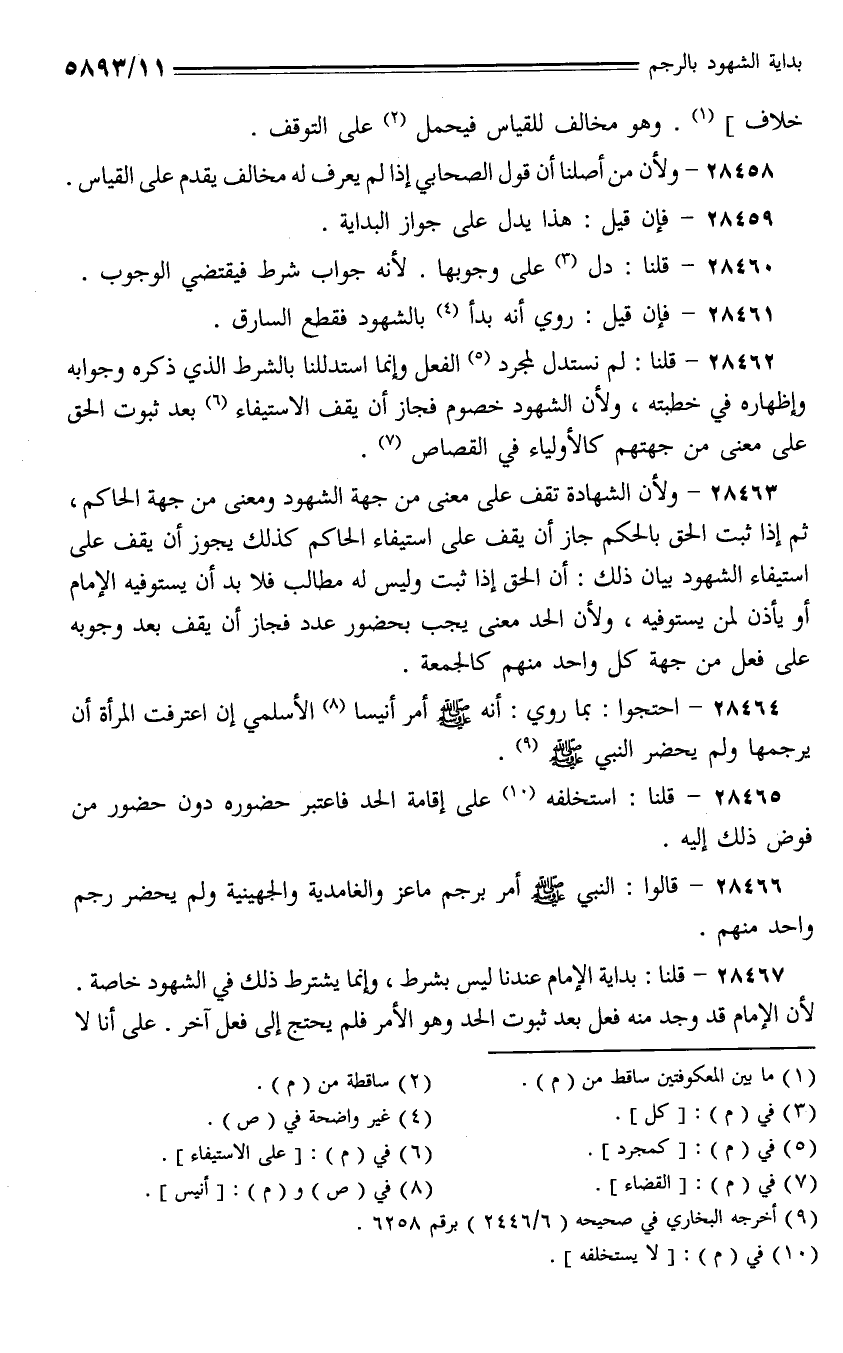 بداية الشهود بالرجم ٥٨٩٣/١١
خلاف ] (١) . وهو مخالف للقياس فيحمل (٢) على التوقف .
٢٨٤٥٨ – ولأن من أصلنا أن قول الصحابي إذا لم يعرف له مخالف يقدم على القياس .
٢٨٤٥٩ – فإن قيل : هذا يدل على جواز البداية .
٢٨٤٦٠ – قلنا : دل (٣) على وجوبها . لأنه جواب شرط فيقتضي الوجوب .
٢٨٤٦١ – فإن قيل : روي أنه بدأ (٤) بالشهود فقطع السارق .
٢٨٤٦٢ – قلنا : لم نستدل لمجرد (٥) الفعل وإنما استدللنا بالشرط الذي ذكره وجوابه
وإظهاره في خطبته ، ولأن الشهود خصوم فجاز أن يقف الاستيفاء (٦) بعد ثبوت الحق
على معنى من جهتهم كالأولياء في القصاص (٧) .
٢٨٤٦٣ – ولأن الشهادة تقف على معنى من جهة الشهود ومعنى من جهة الحاكم ،
ثم إذا ثبت الحق بالحكم جاز أن يقف على استيفاء الحاكم كذلك يجوز أن يقف على
استيفاء الشهود بيان ذلك : أن الحق إذا ثبت وليس له مطالب فلا بد أن يستوفيه الإمام
أو يأذن لمن يستوفيه ، ولأن الحد معنى يجب بحضور عدد فجاز أن يقف بعد وجوبه
على فعل من جهة كل واحد منهم كالجمعة .
٢٨٤٦٤ – احتجوا : بما روي : أنه ﷺ أمر أنيسا (٨) الأسلمي إن اعترفت المرأة أن
يرجمها ولم يحضر النبي ﷺ (٩) .
٢٨٤٦٥ – قلنا : استخلفه (١٠) على إقامة الحد فاعتبر حضوره دون حضور من
فوض ذلك إليه .
٢٨٤٦٦ – قالوا : النبي ﷺ أمر برجم ماعز والغامدية والجهينية ولم يحضر رجم
واحد منهم .
٢٨٤٦٧ – قلنا : بداية الإمام عندنا ليس بشرط ، وإنما يشترط ذلك في الشهود خاصة .
لأن الإمام قد وجد منه فعل بعد ثبوت الحد وهو الأمر فلم يحتج إلى فعل آخر . على أنا لا
(١) ما بين المعكوفتين ساقط من ( م ) . (٢) ساقطة من ( م ) .
(٣) في ( م ) : [ كل ] . (٤) غير واضحة في ( ص ) .
(٥) في ( م ) : [ كمجرد ] . (٦) في ( م ) : [ على الاستيفاء ] .
(٧) في ( م ) : [ القضاء ] . (٨) في ( ص ) و ( م ) : [ أنيس ] .
(٩) أخرجه البخاري في صحيحه ( ٢٤٤٦/٦ ) برقم ٦٢٥٨ .
(١٠) في ( م ) : [ لا يستخلفه ] .